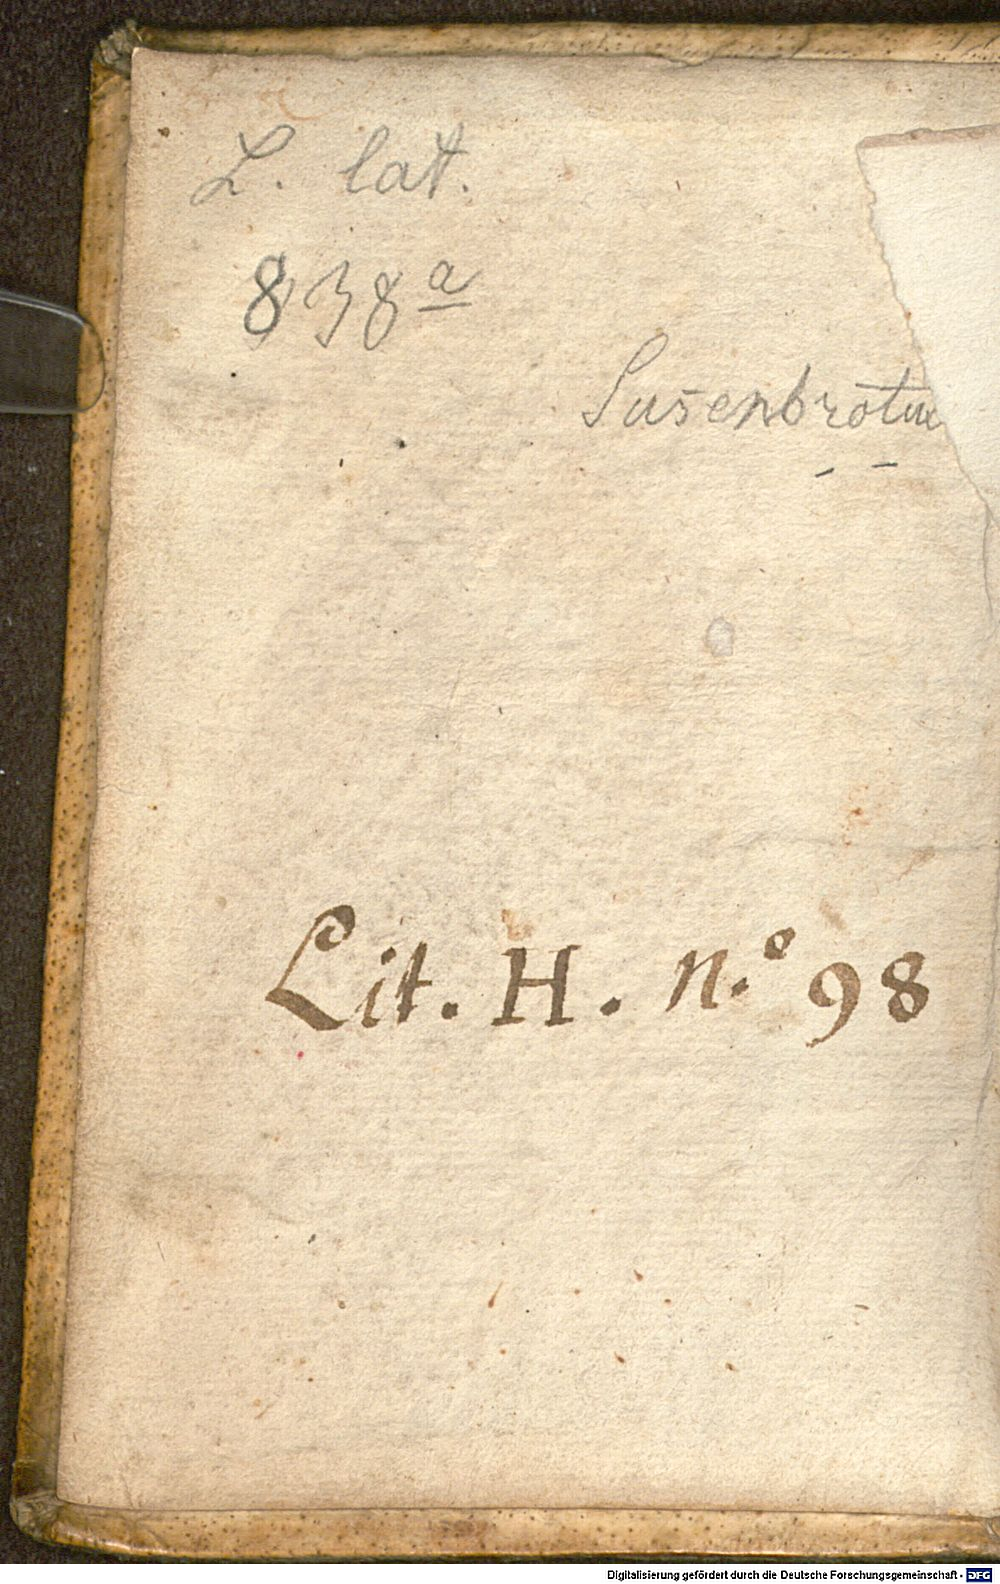 L. lat.
838a
Susenbrotu
Lit. H. n.o 98
Digitalisierung gefördert durch die Deutsche Forschungsgemeinschaft - DFG